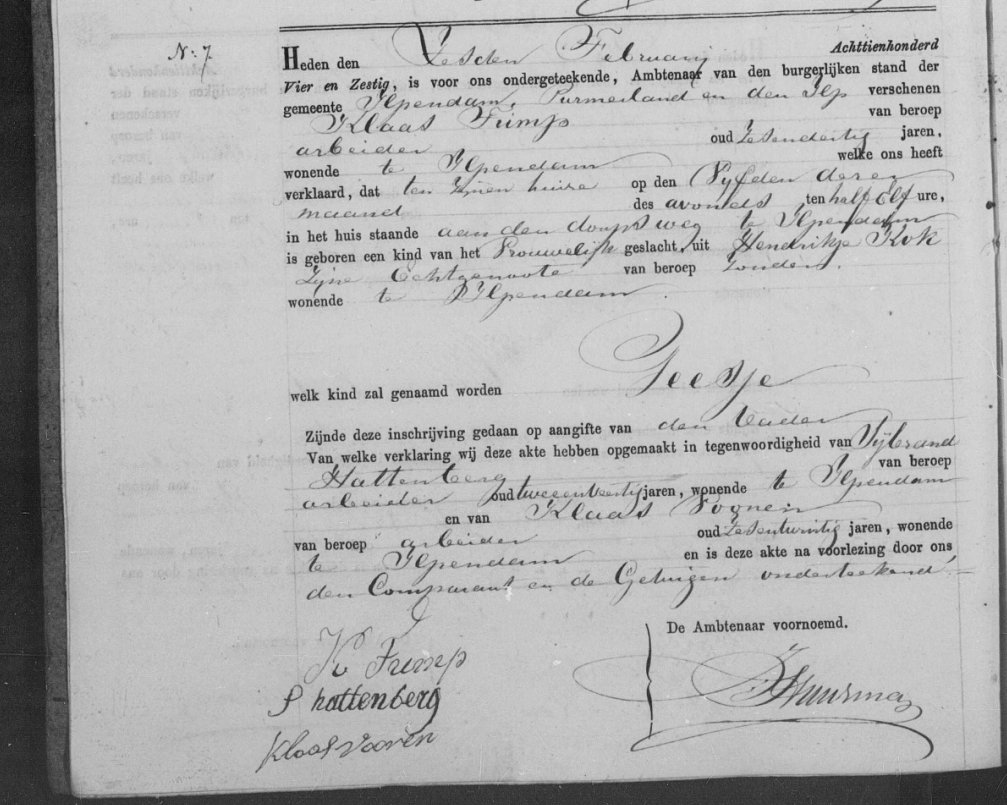 N: 7
Heden den Zesden February Achttienhonderd
Vier en Zestig, is voor ons ondergeteekende, Ambtenaar van den burgerlijken stand der
gemeente Ilpendam, Purmerland en den Ilp verschenen
Klaas Trimp van beroep
arbeider oud zesendertig jaren,
wonende te Ilpendam welke ons heeft
verklaard, dat ten zijnen huise op den Vijfden dezer
maand des avonds ten half Elf ure,
in het huis staande aan den dorpsweg te Ilpendam
is geboren een kind van het Vrouwelijk geslacht, uit Hendrikje Kok
zijne Echtgenoote van beroep zonder,
wonende te Ilpendam.
welk kind zal genaamd worden Geesje
Zijnde deze inschrijving gedaan op aangifte van den Vader
Van welke verklaring wij deze akte hebben opgemaakt in tegenwoordigheid van Sijbrand
Hattenberg van beroep
arbeider oud jaren, wonende te Ilpendam
en van Klaas
van beroep arbeider oud zesentwintig jaren, wonende
te Ilpendam en is deze akte na voorlezing door ons
den Comparant en de Getuigen onderteekend.
De Ambtenaar voornoemd.
K Trimp
S hattenberg
Klaas vooren